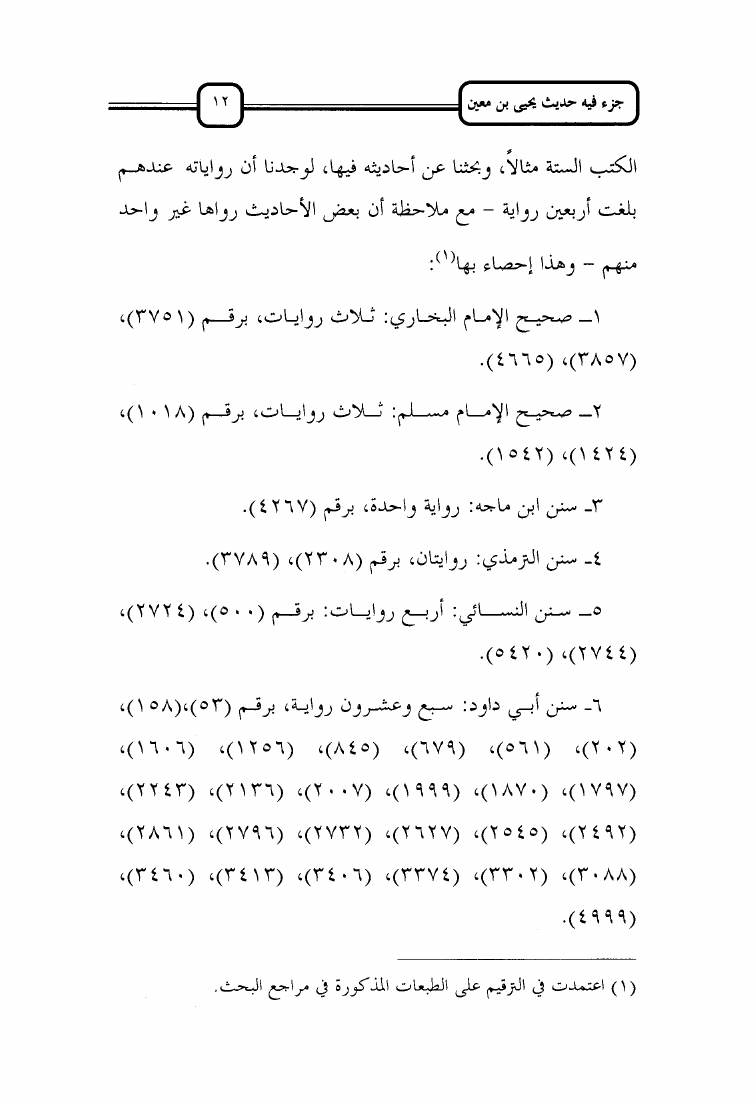 جزء فيه حديث يحيى بن معين
١٢
الكتب الستة مثالاً، وبحثنا عن أحاديثه فيها، لوجدنا أن رواياته عندهم
بلغت أربعين رواية – مع ملاحظة أن بعض الأحاديث رواها غير واحد
منهم – وهذا إحصاء بها(١):
١– صحيح الإمام البخاري: ثلاث روايات، برقم (٣٧٥١)،
(٣٨٥٧)، (٤٦٦٥).
٢– صحيح الإمام مسلم: ثلاث روايات، برقم (١٠١٨)،
(١٤٢٤)، (١٥٤٢).
٣– سنن ابن ماجه: رواية واحدة، برقم (٤٢٦٧).
٤– سنن الترمذي: روايتان، برقم (٢٣٠٨)، (٣٧٨٩).
٥– سنن النسائي: أربع روايات: برقم (٥٠٠)، (٢٧٢٤)،
(٢٧٤٤)، (٥٤٢٠).
٦– سنن أبي داود: سبع وعشرون رواية، برقم (٥٣)،(١٥٨)،
(٢٠٢)، (٥٦١)، (٦٧٩)، (٨٤٥)، (١٢٥٦)، (١٦٠٦)،
(١٧٩٧)، (١٨٧٠)، (١٩٩٩)، (٢٠٠٧)، (٢١٣٦)، (٢٢٤٣)،
(٢٤٩٢)، (٢٥٤٥)، (٢٦٢٧)، (٢٧٣٢)، (٢٧٩٦)، (٢٨٦١)،
(٣٠٨٨)، (٣٣٠٢)، (٣٣٧٤)، (٣٤٠٦)، (٣٤١٣)، (٣٤٦٠)،
(٤٩٩٩).
(١) اعتمدت في الترقيم على الطبعات المذكورة في مراجع البحث.